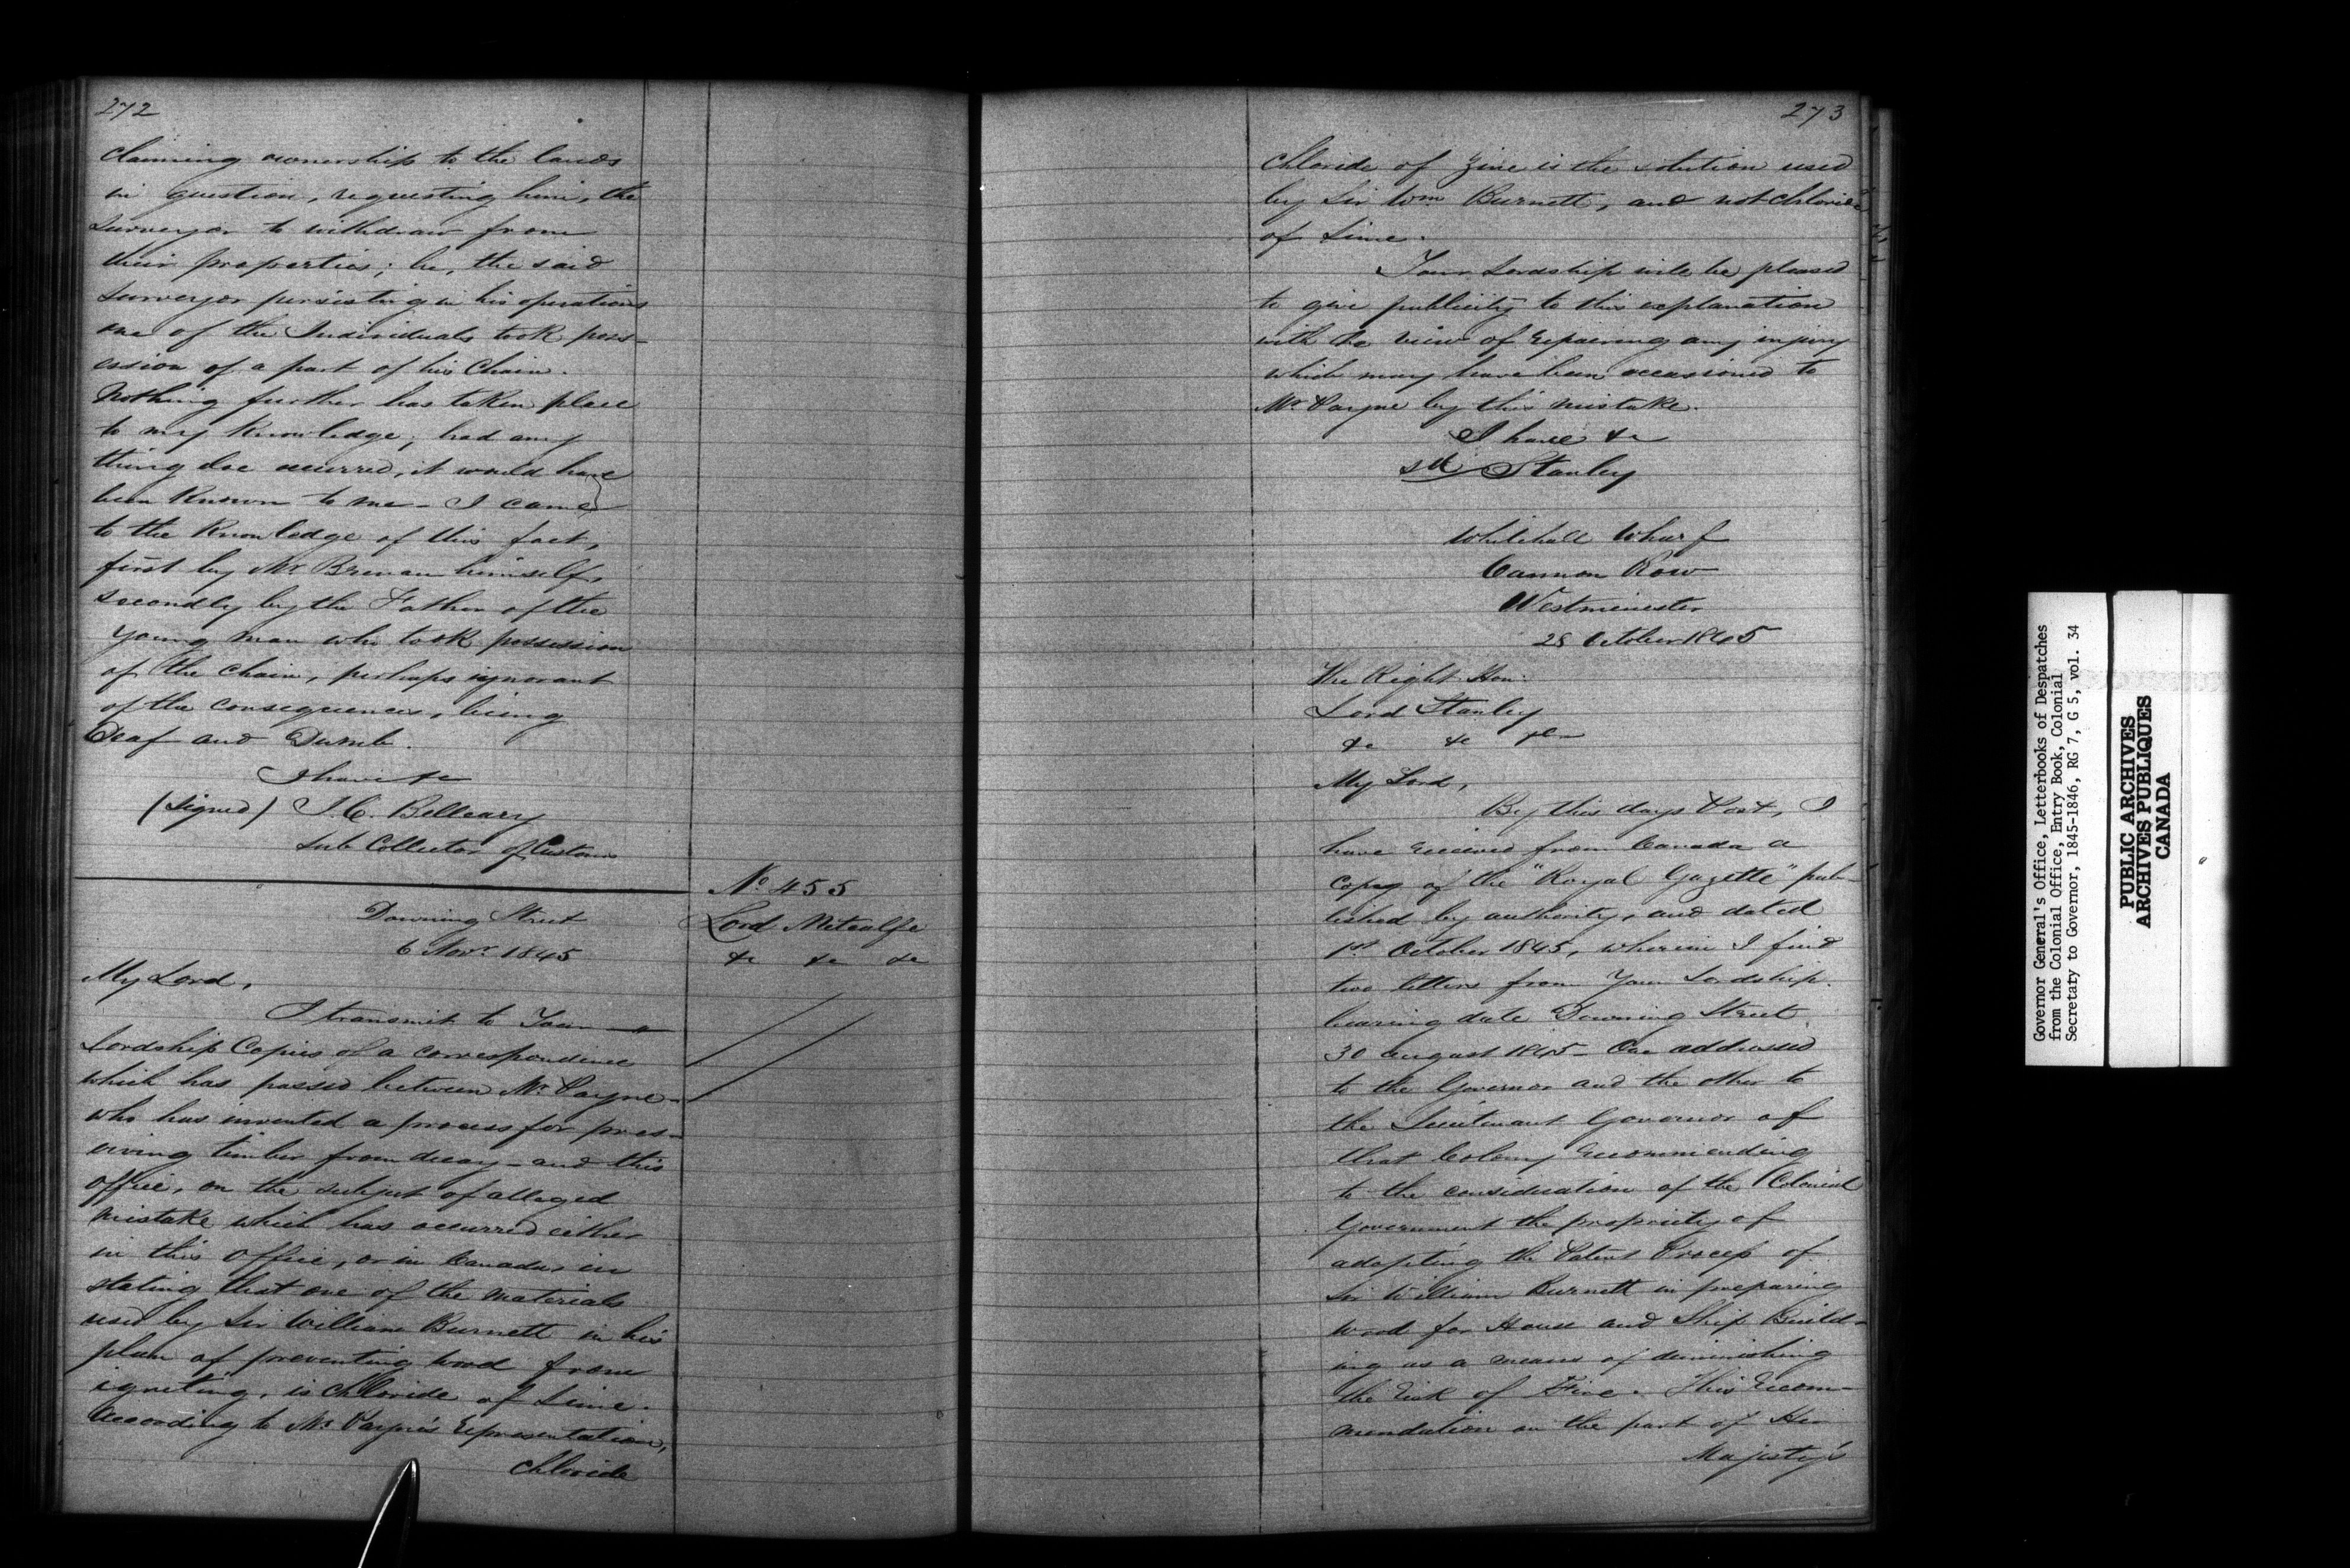 272
claiming ownership to the lands
in question, requesting him, the
Surveyor to withdraw from
their properties; he, the said
Surveyor persisting in his operations
one of the Individuals took poss-
ession of a part of his Chain.
Nothing further has taken place
to my Knowledge; had any
thing else occurred, it would have
been Known to me - I came
to the Knowledge of this fact,
first by Mr Brenan himself,
secondly by the Father of the
young man who took possession
of the chain, perhaps ignorant
of the consequences, being
Deaf and Dumb.
I have &c
(signed) J. C. Belleau
Sub Collector of Customs
No 455
Lord Metcalfe
&c &c &c
Downing Street
6 Novr 1845
My Lord,
I transmit to Your
Lordship Copies of a correspondence
which has passed between Mr Payne
who has invented a process for pres-
erving timber from decay - and this
Office, on the subject of alleged
mistake which has occurred either
in this Office, or in Canada in
stating that one of the materials
used by Sir William Burnett in his
plan of preventing wood from
igniting, is Chloride of Lime.
According to Mr Payne's representation,
Chloride
273
Chloride of Zinc is the solution used
by Sir Wm Burnett, and not Chloride
of Lime.
Your Lordship will be pleased
to give publicity to this explanation
with the view of repairing any injury
which may have been occasioned to
Mr Payne by this mistake.
I have &c
sd Stanley
Whitehall Wharf
Cannon Row
Westminster
28 October 1845
The Right Hon:
Lord Stanley
&c &c &c
My Lord,
By this days Post, I
have received from Canada a
copy of the "Royal Gazette" pub-
lished by authority, and dated
1st October 1845, wherein I find
two letters from Your Lordship
bearing date Downing Street
30 August 1845 - One addressed
to the Governor and the other to
the Lieutenant Governor of
that Colony recommending
to the consideration of the Colonial
Government the propriety of
adopting the Patent Process of
Sir William Burnett in preparing
wood for House and Ship Build-
ing as a means of diminishing
the risk of Fire. This recom-
mendation on the part of Her
Majesty's
Governor General's Office, Letterbooks of Despatches
from the Colonial Office, Entry Book, Colonial
Secretary to Governor, 1845-1846, RG 7, G 5, vol. 34
PUBLIC ARCHIVES
ARCHIVES PUBLIQUES
CANADA